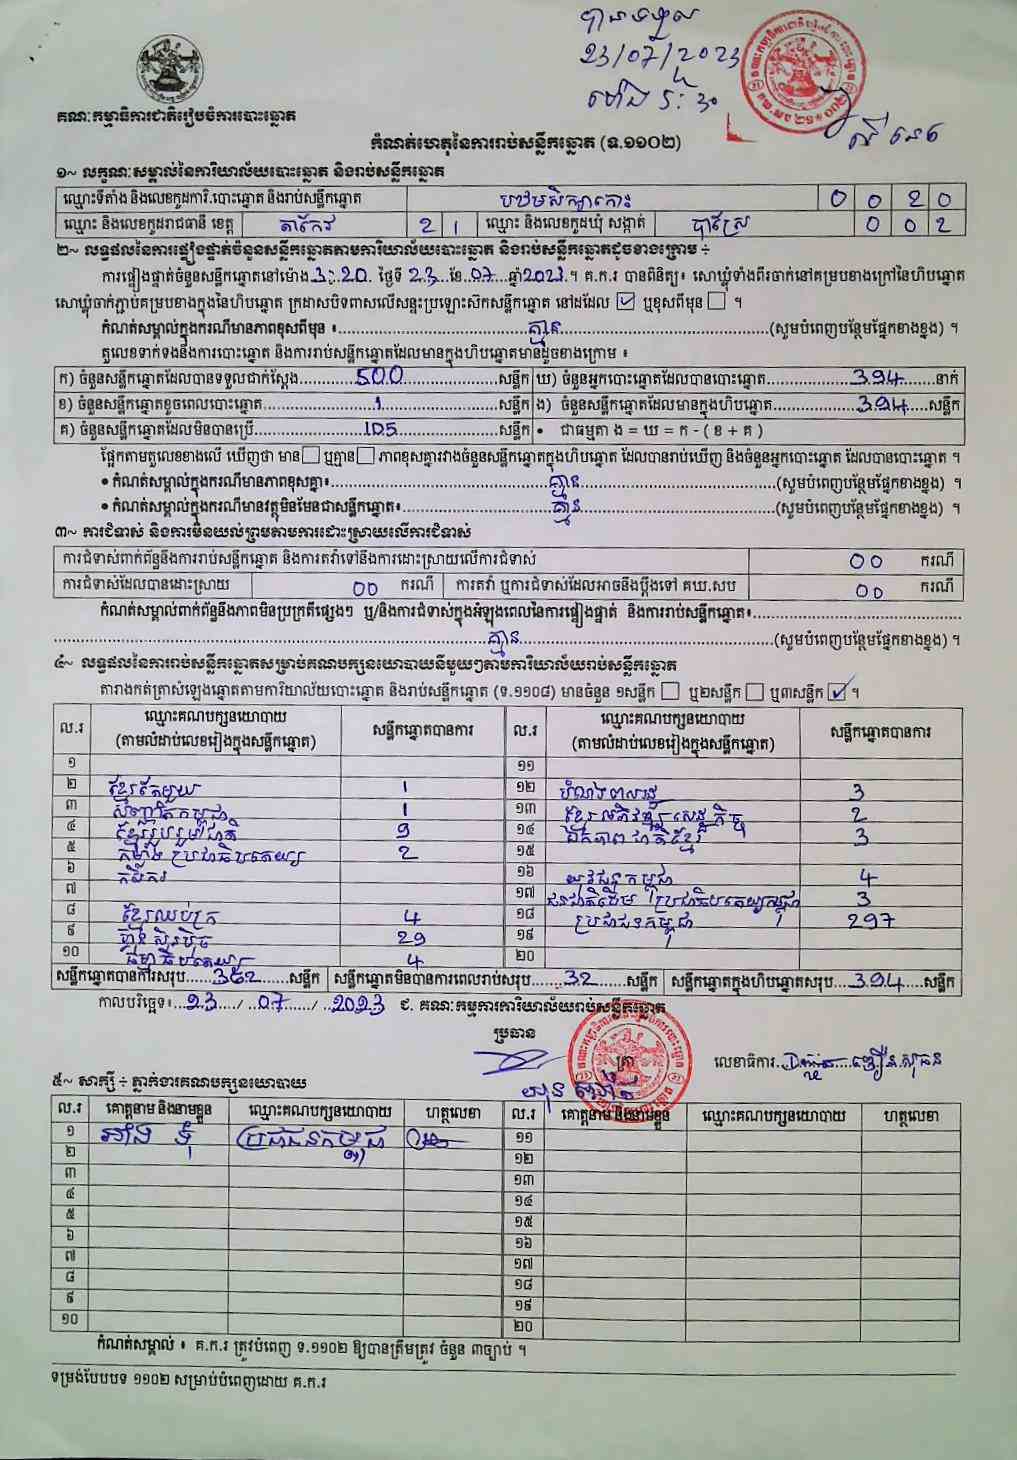 បានទទួល
23/07/2023
ម៉ោង ៩:៣០
គណៈកម្មាធិការជាតិរៀបចំការបោះឆ្នោត
កំណត់ហេតុនៃការរាប់សន្លឹកឆ្នោត (ទ.១១០២)
១~ លក្ខណៈសម្គាល់នៃការិយាល័យបោះឆ្នោត និងរាប់សន្លឹកឆ្នោត
ឈ្មោះទីតាំង និងលេខកូដការិ.បោះឆ្នោត និងរាប់សន្លឹកឆ្នោត បឋមសិក្សាកោះ 0 0 2 0
ឈ្មោះ និងលេខកូដរាជធានី ខេត្ត តាកែវ 2 1 ឈ្មោះ និងលេខកូដឃុំ សង្កាត់ បាស្រែ 0 0 2
២~ លទ្ធផលនៃការផ្ទៀងផ្ទាត់ចំនួនសន្លឹកឆ្នោតតាមការិយាល័យបោះឆ្នោត និងរាប់សន្លឹកឆ្នោតដូចខាងក្រោម ÷
ការផ្ទៀងផ្ទាត់ចំនួនសន្លឹកឆ្នោតនៅម៉ោង 3:20 ថ្ងៃទី 23 ខែ 07 ឆ្នាំ 2023 ។ គ.ក.រ បានពិនិត្យ៖ សោឃ្លុំទាំងពីរចាក់នៅគម្របខាងក្រៅនៃហិបឆ្នោត
សោឃ្លុំចាក់ភ្ជាប់គម្របខាងក្នុងនៃហិបឆ្នោត ក្រដាសបិទពាសលើសន្ទះប្រឡោះសិកសន្លឹកឆ្នោត នៅដដែល ☑ ឬខុសពីមុន ☐ ។
កំណត់សម្គាល់ក្នុងករណីមានភាពខុសពីមុន ៖ គ្មាន (សូមបំពេញបន្ថែមផ្នែកខាងខ្នង) ។
តួលេខទាក់ទងនឹងការបោះឆ្នោត និងការរាប់សន្លឹកឆ្នោតដែលមានក្នុងហិបឆ្នោតមានដូចខាងក្រោម ៖
ក) ចំនួនសន្លឹកឆ្នោតដែលបានទទួលជាក់ស្តែង 500 សន្លឹក ឃ) ចំនួនអ្នកបោះឆ្នោតដែលបានបោះឆ្នោត 394 នាក់
ខ) ចំនួនសន្លឹកឆ្នោតខូចពេលបោះឆ្នោត 1 សន្លឹក ង) ចំនួនសន្លឹកឆ្នោតដែលមានក្នុងហិបឆ្នោត 394 សន្លឹក
គ) ចំនួនសន្លឹកឆ្នោតដែលមិនបានប្រើ 105 សន្លឹក • ជាធម្មតា ង = ឃ = ក - ( ខ + គ )
ផ្អែកតាមតួលេខខាងលើ ឃើញថា មាន ☐ ឬគ្មាន ☐ ភាពខុសគ្នារវាងចំនួនសន្លឹកឆ្នោតក្នុងហិបឆ្នោត ដែលបានរាប់ឃើញ និងចំនួនអ្នកបោះឆ្នោត ដែលបានបោះឆ្នោត ។
• កំណត់សម្គាល់ក្នុងករណីមានភាពខុសគ្នា៖ គ្មាន (សូមបំពេញបន្ថែមផ្នែកខាងខ្នង) ។
• កំណត់សម្គាល់ក្នុងករណីមានវត្ថុមិនមែនជាសន្លឹកឆ្នោត៖ គ្មាន (សូមបំពេញបន្ថែមផ្នែកខាងខ្នង) ។
៣~ ការជំទាស់ និងការមិនយល់ព្រមតាមការដោះស្រាយលើការជំទាស់
ការជំទាស់ពាក់ព័ន្ធនឹងការរាប់សន្លឹកឆ្នោត និងការតវ៉ាទៅនឹងការដោះស្រាយលើការជំទាស់ 00 ករណី
ការជំទាស់ដែលបានដោះស្រាយ 00 ករណី ការតវ៉ា ឬការជំទាស់ដែលអាចនឹងប្តឹងទៅ គឃ.សប 00 ករណី
កំណត់សម្គាល់ពាក់ព័ន្ធនឹងភាពមិនប្រក្រតីផ្សេងៗ ឬ/និងការជំទាស់ក្នុងអំឡុងពេលនៃការផ្ទៀងផ្ទាត់ និងការរាប់សន្លឹកឆ្នោត៖
គ្មាន (សូមបំពេញបន្ថែមផ្នែកខាងខ្នង) ។
៤~ លទ្ធផលនៃការរាប់សន្លឹកឆ្នោតសម្រាប់គណបក្សនយោបាយនីមួយៗតាមការិយាល័យរាប់សន្លឹកឆ្នោត
តារាងកត់ត្រាសំឡេងឆ្នោតតាមការិយាល័យបោះឆ្នោត និងរាប់សន្លឹកឆ្នោត (ទ.១១០៨) មានចំនួន ១សន្លឹក ☐ ឬ២សន្លឹក ☐ ឬ៣សន្លឹក ☑ ។
ល.រ ឈ្មោះគណបក្សនយោបាយ (តាមលំដាប់លេខរៀងក្នុងសន្លឹកឆ្នោត) សន្លឹកឆ្នោតបានការ ល.រ ឈ្មោះគណបក្សនយោបាយ (តាមលំដាប់លេខរៀងក្នុងសន្លឹកឆ្នោត) សន្លឹកឆ្នោតបានការ
១ ១១
២ ខ្មែរតែមួយ 1 ១២ បំណងពលរដ្ឋ 3
៣ សំបុកឃ្មុំកម្ពុជា 1 ១៣ ខ្មែរអភិវឌ្ឍន៍សេដ្ឋកិច្ច 2
៤ ខ្មែររួបរួមជាតិ 9 ១៤ ឯកភាពជាតិខ្មែរ 3
៥ កម្លាំងប្រជាធិបតេយ្យ 2 ១៥
៦ កសិករ ១៦ យុវជនកម្ពុជា 4
៧ ១៧ ជនជាតិដើមប្រជាធិបតេយ្យកម្ពុជា 3
៨ ខ្មែរឈប់ក្រ 4 ១៨ ប្រជាជនកម្ពុជា 297
៩ ហ៊្វុនស៊ិនប៉ិច 29 ១៩
១០ ធម្មាធិបតេយ្យ 4 ២០
សន្លឹកឆ្នោតបានការសរុប 362 សន្លឹក សន្លឹកឆ្នោតមិនបានការពេលរាប់សរុប 32 សន្លឹក សន្លឹកឆ្នោតក្នុងហិបឆ្នោតសរុប 394 សន្លឹក
កាលបរិច្ឆេទ៖ 23 / 07 / 2023 ជ. គណៈកម្មការការិយាល័យរាប់សន្លឹកឆ្នោត
ប្រធាន ត្រា លេខាធិការ
៥~ សាក្សី ÷ ភ្នាក់ងារគណបក្សនយោបាយ
ល.រ គោត្តនាម និងនាមខ្លួន ឈ្មោះគណបក្សនយោបាយ ហត្ថលេខា ល.រ គោត្តនាម និងនាមខ្លួន ឈ្មោះគណបក្សនយោបាយ ហត្ថលេខា
១ ប្រជាជនកម្ពុជា ១១
២ ១២
៣ ១៣
៤ ១៤
៥ ១៥
៦ ១៦
៧ ១៧
៨ ១៨
៩ ១៩
១០ ២០
កំណត់សម្គាល់ ៖ គ.ក.រ ត្រូវបំពេញ ទ.១១០២ ឱ្យបានត្រឹមត្រូវ ចំនួន ៣ច្បាប់ ។
ទម្រង់បែបបទ ១១០២ សម្រាប់បំពេញដោយ គ.ក.រ